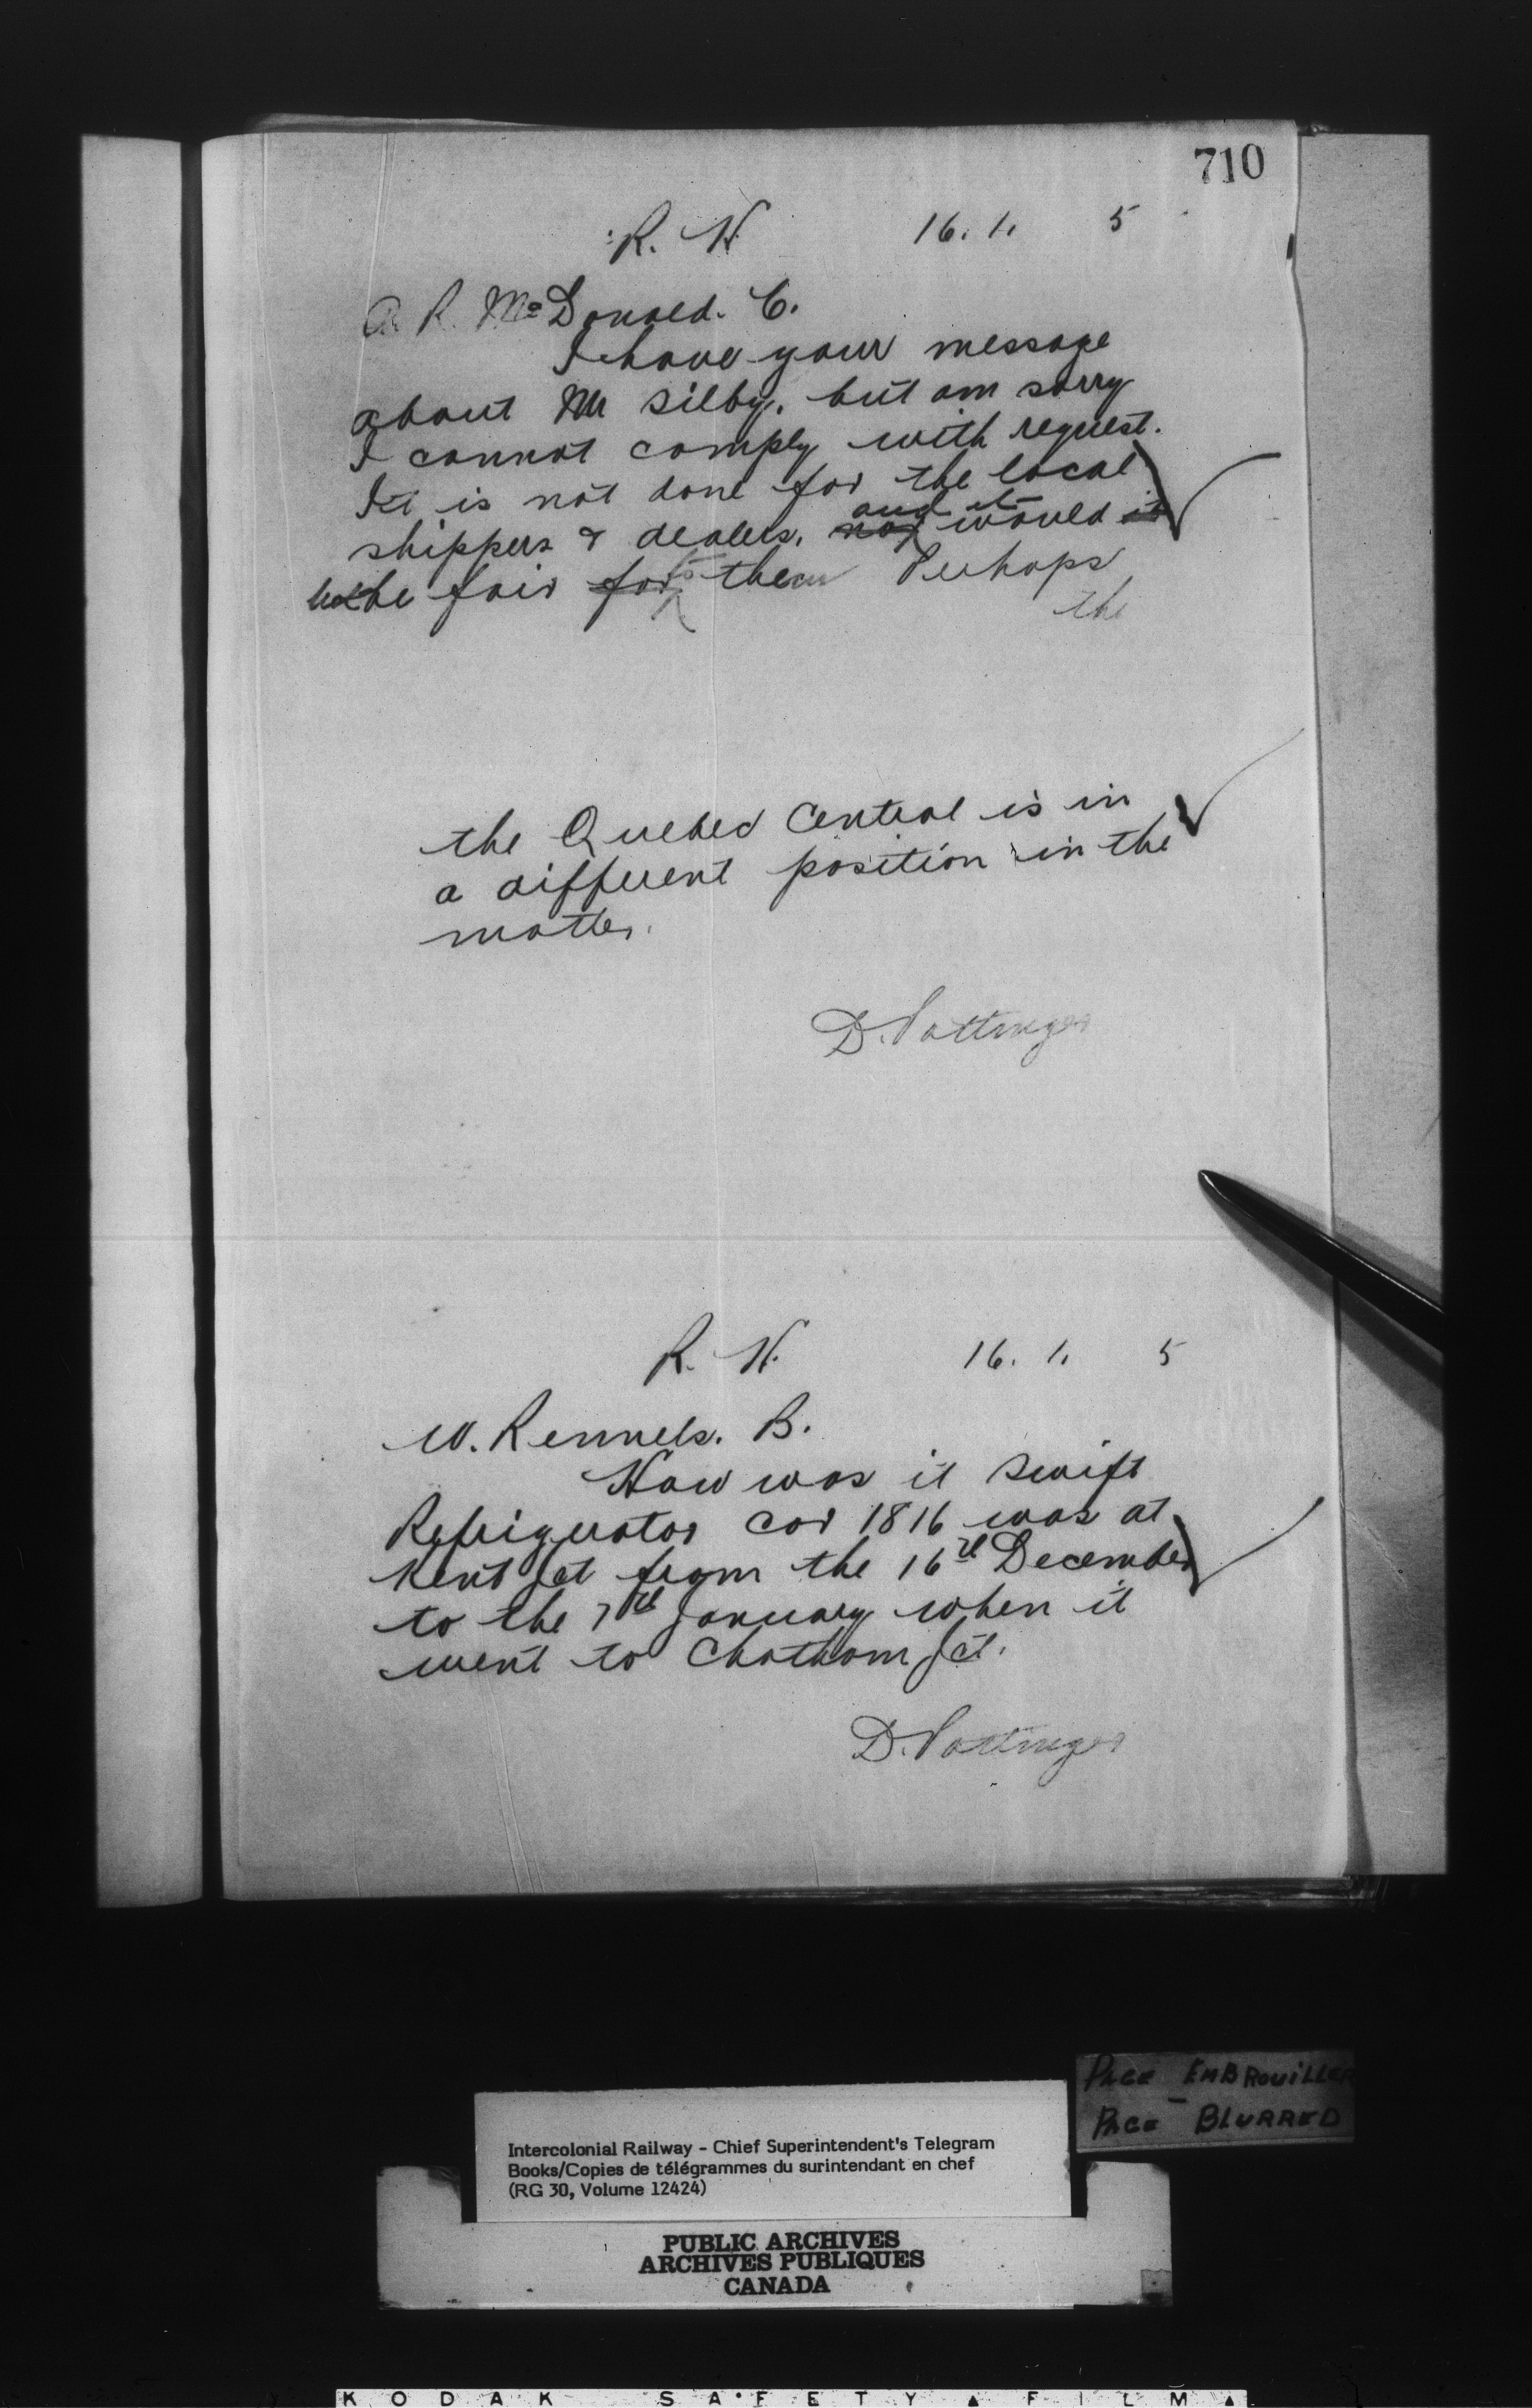 710
R. H. 16. 1. 5
A. R. McDonald. C.
I have your message
about Mr Silby. but am sorry
I cannot comply with request.
It is not done for the local
and it
shippers & dealers. nor would it
not be fair for to them Perhaps
the
the Quebec Central is in
a different position in the
matter.
D. Pottinger
R. H. 16. 1. 5
W. Rennels. B.
How was it Swift
Refrigerator car 1816 was at
Kent Jct from the 16th December
to the 7th January when it
went to Chatham Jct.
D. Pottinger
PAGE EMBROUILLER
PAGE - BLURRED
Intercolonial Railway - Chief Superintendent's Telegram
Books/Copies de télégrammes du surintendant en chef
(RG 30, Volume 12424)
PUBLIC ARCHIVES
ARCHIVES PUBLIQUES
CANADA
KODAK SAFETY FILM